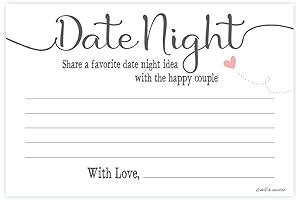 Date Night
Share a favorite date night idea
with the happy couple
With Love,